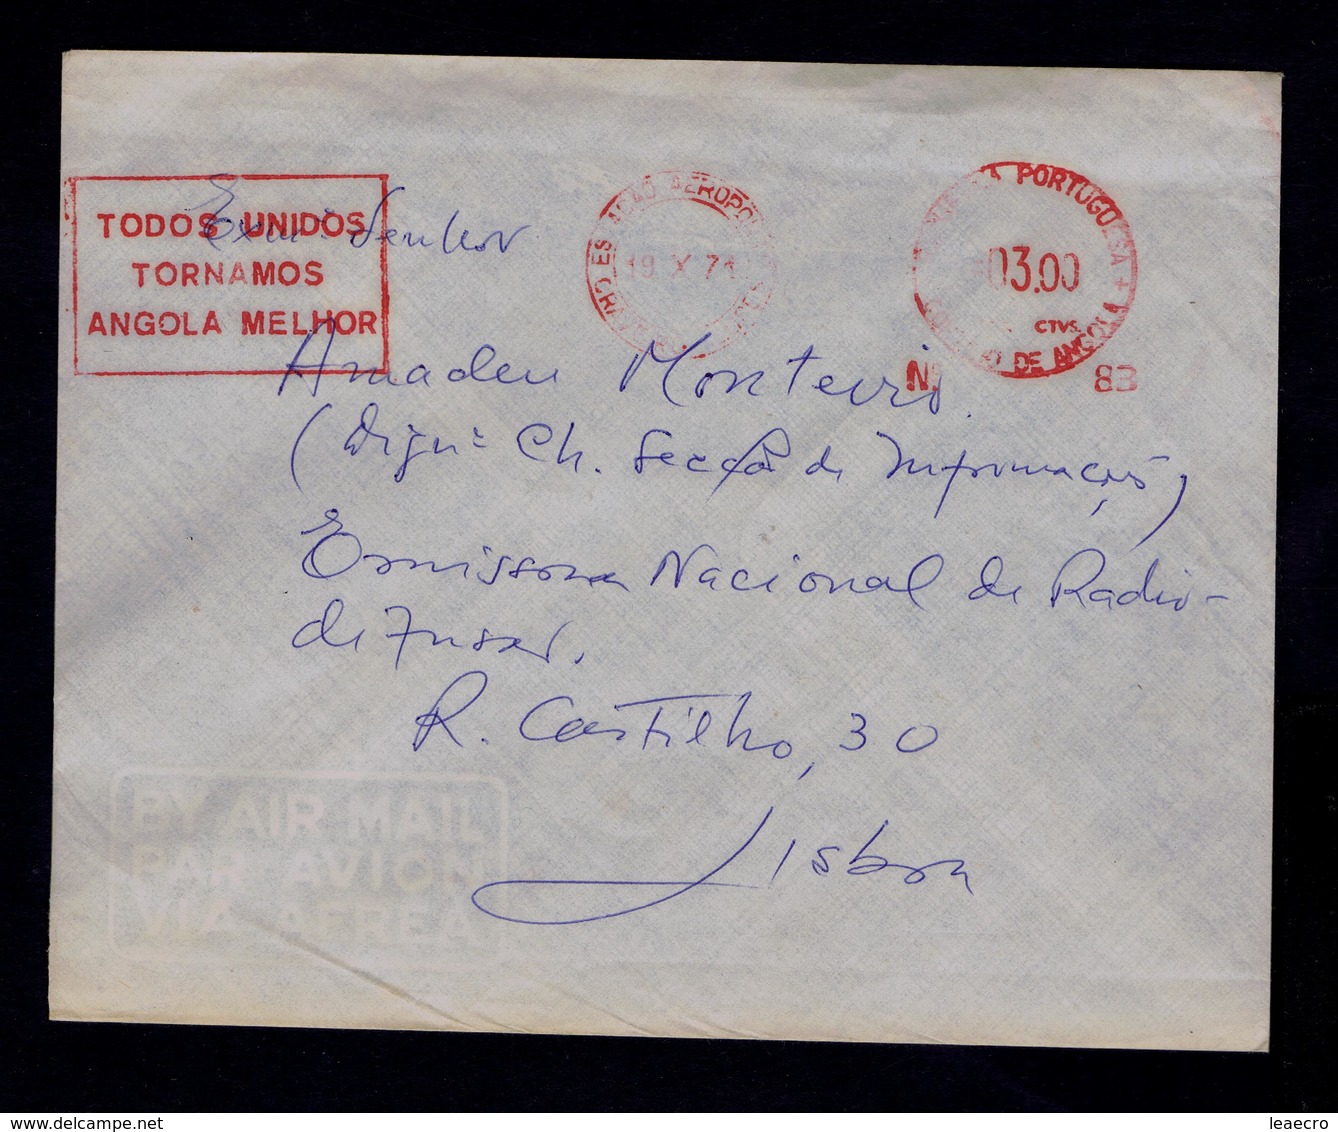 TODOS UNIDOS
TORNAMOS
ANGOLA MELHOR
19 X 71
PORTUGUESA +
03.00
CTVS.
DE ANGOLA
83
Exmº Senhor
Amadeu Monteiro
(Dignº Ch. Secção de Informação)
Emissora Nacional de Radio-
difusão.
R. Castilho, 30
Lisboa
BY AIR MAIL
PAR AVION
VIA AEREA
delcampe.net
leaecro